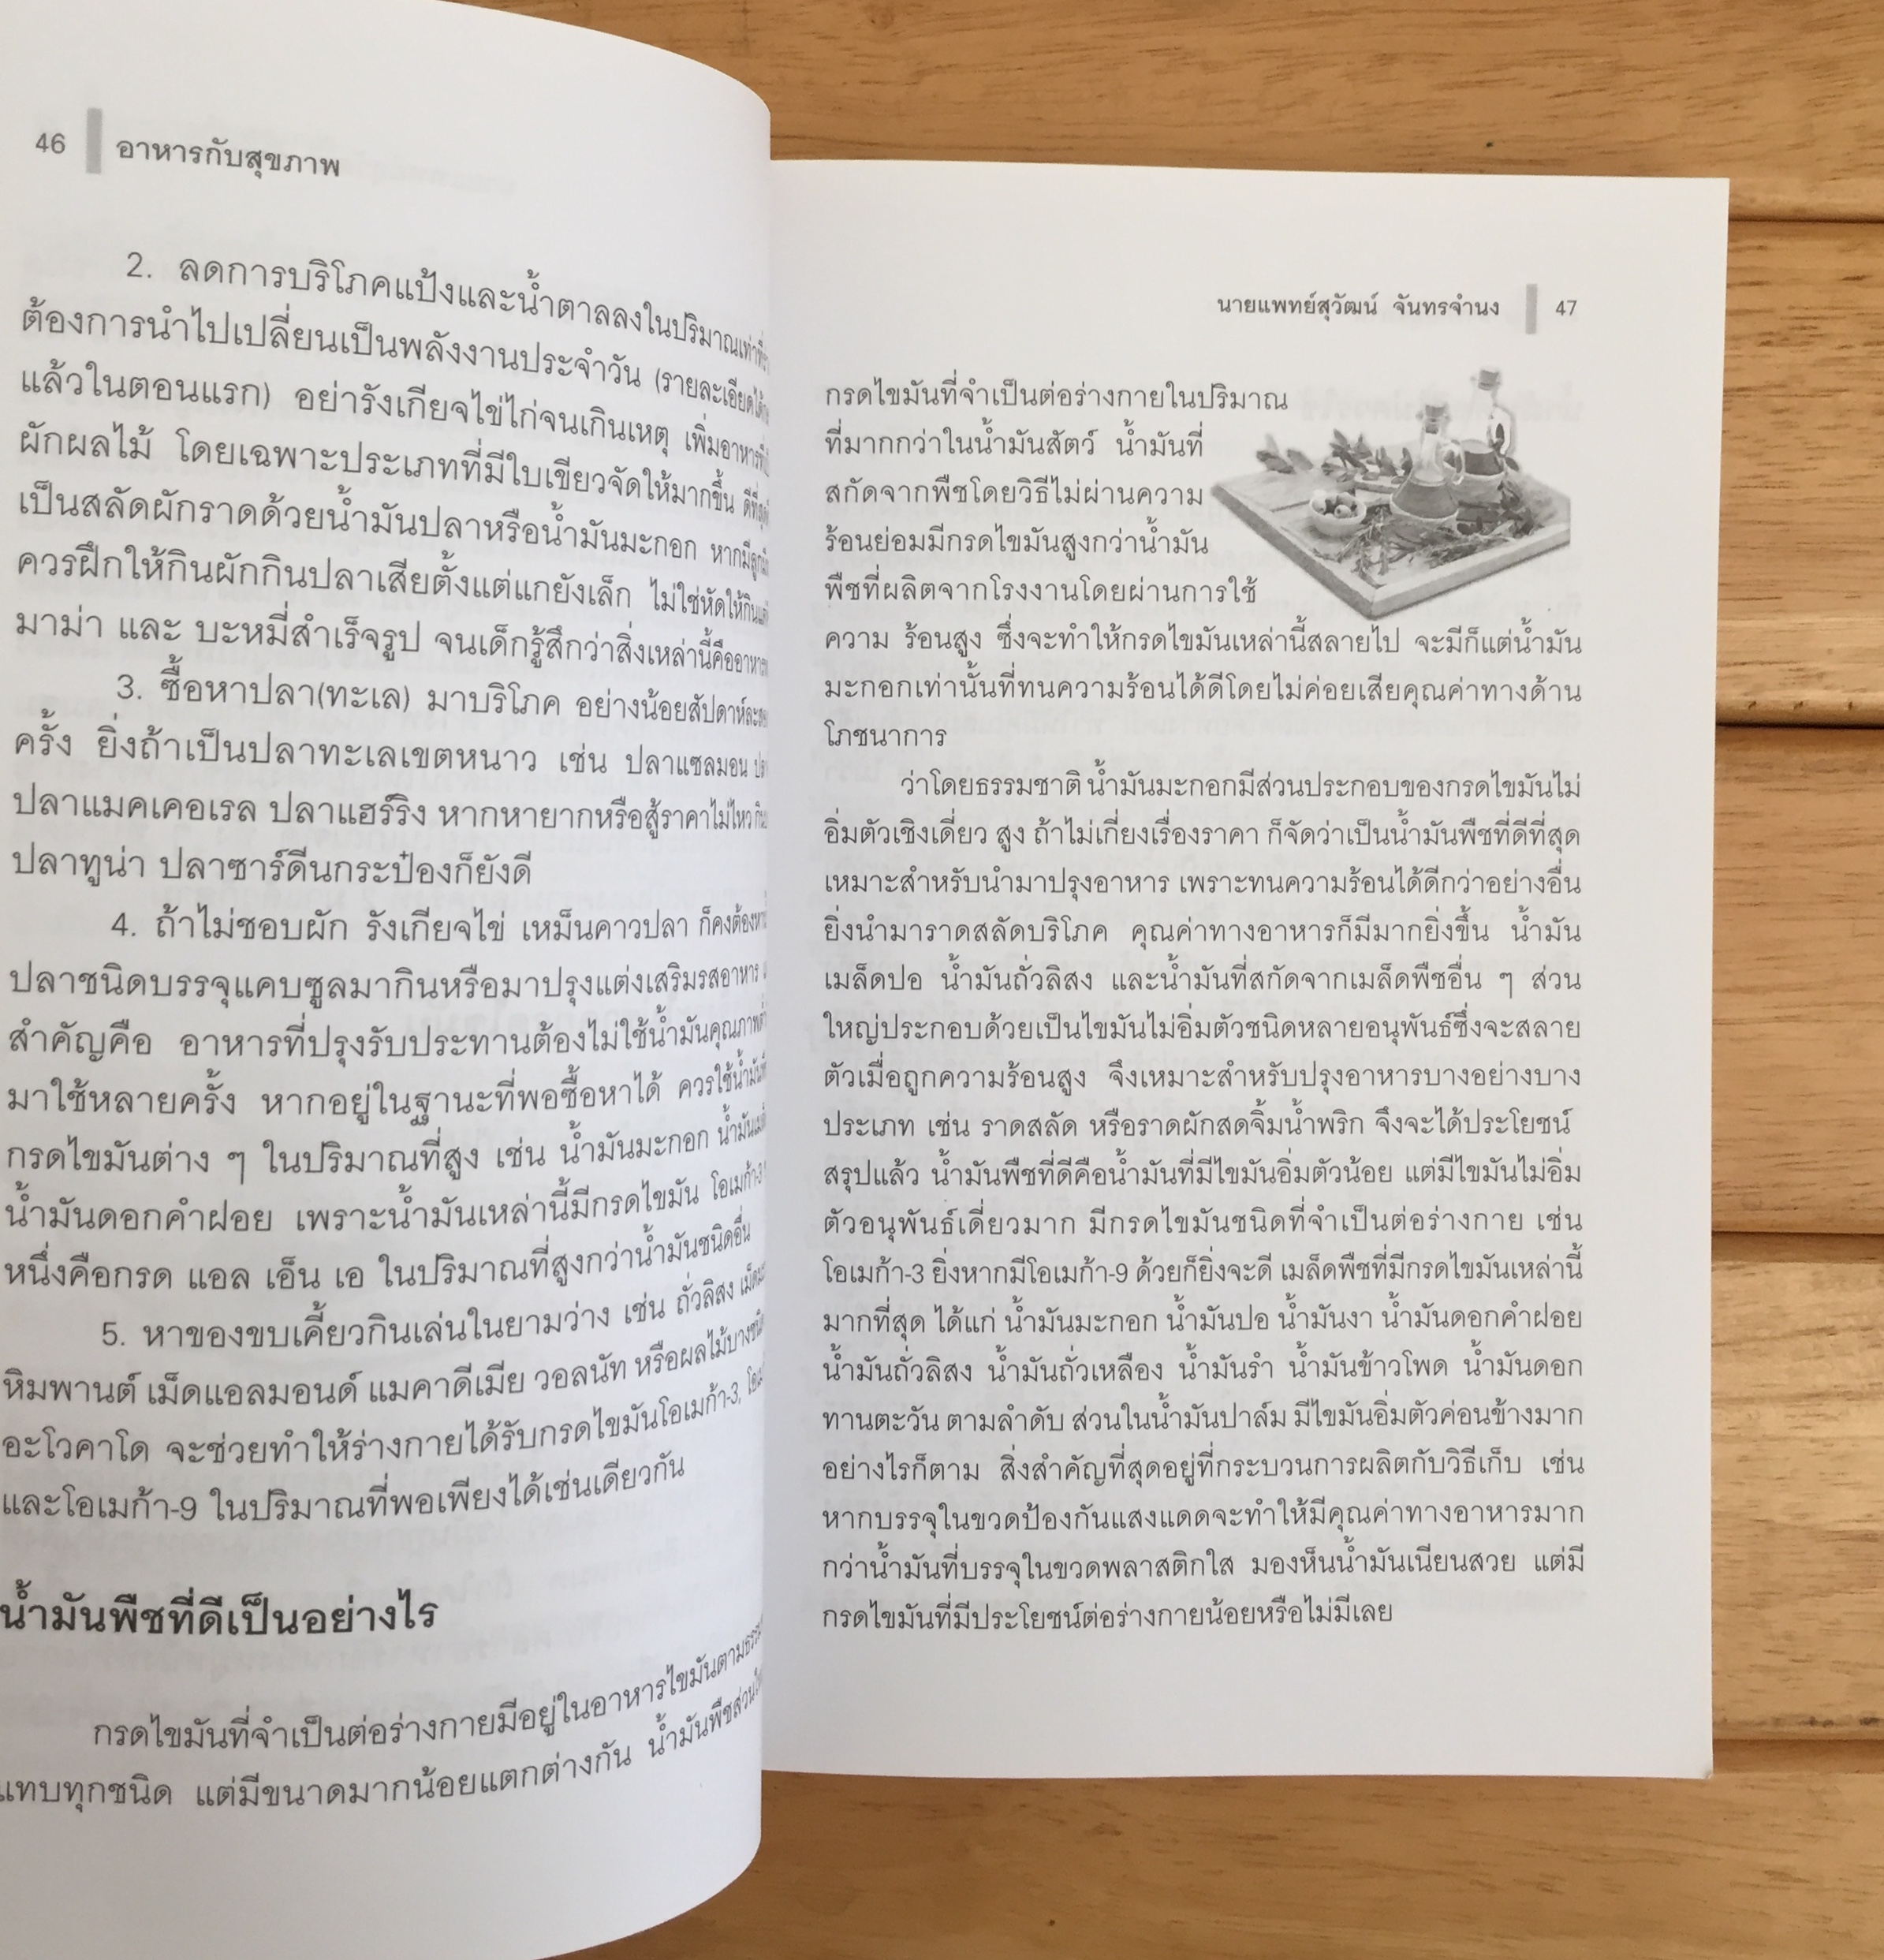 46 อาหารกับสุขภาพ
2. ลดการบริโภคแป้งและน้ำตาลลงในปริมาณเท่าที่
ต้องการนำไปเปลี่ยนเป็นพลังงานประจำวัน (รายละเอียด
แล้วในตอนแรก) อย่ารังเกียจไข่ไก่จนเกินเหตุ เพิ่มอาหาร
ผักผลไม้ โดยเฉพาะประเภทที่มีใบเขียวจัดให้มากขึ้น
เป็นสลัดผักราดด้วยน้ำมันปลาหรือน้ำมันมะกอก หากมี
ควรฝึกให้กินผักกินปลาเสียตั้งแต่แกยังเล็ก ไม่ใช่หัดให้กิน
มาม่า และ บะหมี่สำเร็จรูป จนเด็กรู้สึกว่าสิ่งเหล่านี้คืออาหาร
3. ซื้อหาปลา(ทะเล) มาบริโภค อย่างน้อยสัปดาห์ละ
ครั้ง ยิ่งถ้าเป็นปลาทะเลเขตหนาว เช่น ปลาแซลมอน
ปลาแมคเคอเรล ปลาแฮร์ริง หากหายากหรือสู้ราคาไม่ไหว
ปลาทูน่า ปลาซาร์ดีนกระป๋องก็ยังดี
4. ถ้าไม่ชอบผัก รังเกียจไข่ เหม็นคาวปลา ก็คงต้อง
ปลาชนิดบรรจุแคบซูลมากินหรือมาปรุงแต่งเสริมรสอาหาร
สำคัญคือ อาหารที่ปรุงรับประทานต้องไม่ใช้น้ำมันคุณภาพ
มาใช้หลายครั้ง หากอยู่ในฐานะที่พอซื้อหาได้ ควรใช้น้ำมัน
กรดไขมันต่าง ๆ ในปริมาณที่สูง เช่น น้ำมันมะกอก
น้ำมันดอกคำฝอย เพราะน้ำมันเหล่านี้มีกรดไขมัน โอเมก้า-3
หนึ่งคือกรด แอล เอ็น เอ ในปริมาณที่สูงกว่าน้ำมันชนิดอื่น
5. หาของขบเคี้ยวกินเล่นในยามว่าง เช่น ถั่วลิสง
หิมพานต์ เม็ดแอลมอนด์ แมคาดีเมีย วอลนัท หรือผลไม้บางชนิด
อะโวคาโด จะช่วยทำให้ร่างกายได้รับกรดไขมันโอเมก้า-3,
และโอเมก้า-9 ในปริมาณที่พอเพียงได้เช่นเดียวกัน
น้ำมันพืชที่ดีเป็นอย่างไร
กรดไขมันที่จำเป็นต่อร่างกายมีอยู่ในอาหารไขมันตาม
แทบทุกชนิด แต่มีขนาดมากน้อยแตกต่างกัน น้ำมันพืช
นายแพทย์สุวัฒน์ จันทรจำนง 47
กรดไขมันที่จำเป็นต่อร่างกายในปริมาณ
ที่มากกว่าในน้ำมันสัตว์ น้ำมันที่
สกัดจากพืชโดยวิธีไม่ผ่านความ
ร้อนย่อมมีกรดไขมันสูงกว่าน้ำมัน
พืชที่ผลิตจากโรงงานโดยผ่านการใช้
ความ ร้อนสูง ซึ่งจะทำให้กรดไขมันเหล่านี้สลายไป จะมีก็แต่น้ำมัน
มะกอกเท่านั้นที่ทนความร้อนได้ดีโดยไม่ค่อยเสียคุณค่าทางด้าน
โภชนาการ
ว่าโดยธรรมชาติ น้ำมันมะกอกมีส่วนประกอบของกรดไขมันไม่
อิ่มตัวเชิงเดี่ยว สูง ถ้าไม่เกี่ยงเรื่องราคา ก็จัดว่าเป็นน้ำมันพืชที่ดีที่สุด
เหมาะสำหรับนำมาปรุงอาหาร เพราะทนความร้อนได้ดีกว่าอย่างอื่น
ยิ่งนำมาราดสลัดบริโภค คุณค่าทางอาหารก็มีมากยิ่งขึ้น น้ำมัน
เมล็ดปอ น้ำมันถั่วลิสง และน้ำมันที่สกัดจากเมล็ดพืชอื่น ๆ ส่วน
ใหญ่ประกอบด้วยเป็นไขมันไม่อิ่มตัวชนิดหลายอนุพันธ์ซึ่งจะสลาย
ตัวเมื่อถูกความร้อนสูง จึงเหมาะสำหรับปรุงอาหารบางอย่างบาง
ประเภท เช่น ราดสลัด หรือราดผักสดจิ้มน้ำพริก จึงจะได้ประโยชน์
สรุปแล้ว น้ำมันพืชที่ดีคือน้ำมันที่มีไขมันอิ่มตัวน้อย แต่มีไขมันไม่อิ่ม
ตัวอนุพันธ์เดี่ยวมาก มีกรดไขมันชนิดที่จำเป็นต่อร่างกาย เช่น
โอเมก้า-3 ยิ่งหากมีโอเมก้า-9 ด้วยก็ยิ่งจะดี เมล็ดพืชที่มีกรดไขมันเหล่านี้
มากที่สุด ได้แก่ น้ำมันมะกอก น้ำมันปอ น้ำมันงา น้ำมันดอกคำฝอย
น้ำมันถั่วลิสง น้ำมันถั่วเหลือง น้ำมันรำ น้ำมันข้าวโพด น้ำมันดอก
ทานตะวัน ตามลำดับ ส่วนในน้ำมันปาล์ม มีไขมันอิ่มตัวค่อนข้างมาก
อย่างไรก็ตาม สิ่งสำคัญที่สุดอยู่ที่กระบวนการผลิตกับวิธีเก็บ เช่น
หากบรรจุในขวดป้องกันแสงแดดจะทำให้มีคุณค่าทางอาหารมาก
กว่าน้ำมันที่บรรจุในขวดพลาสติกใส มองห็นน้ำมันเนียนสวย แต่มี
กรดไขมันที่มีประโยชน์ต่อร่างกายน้อยหรือไม่มีเลย